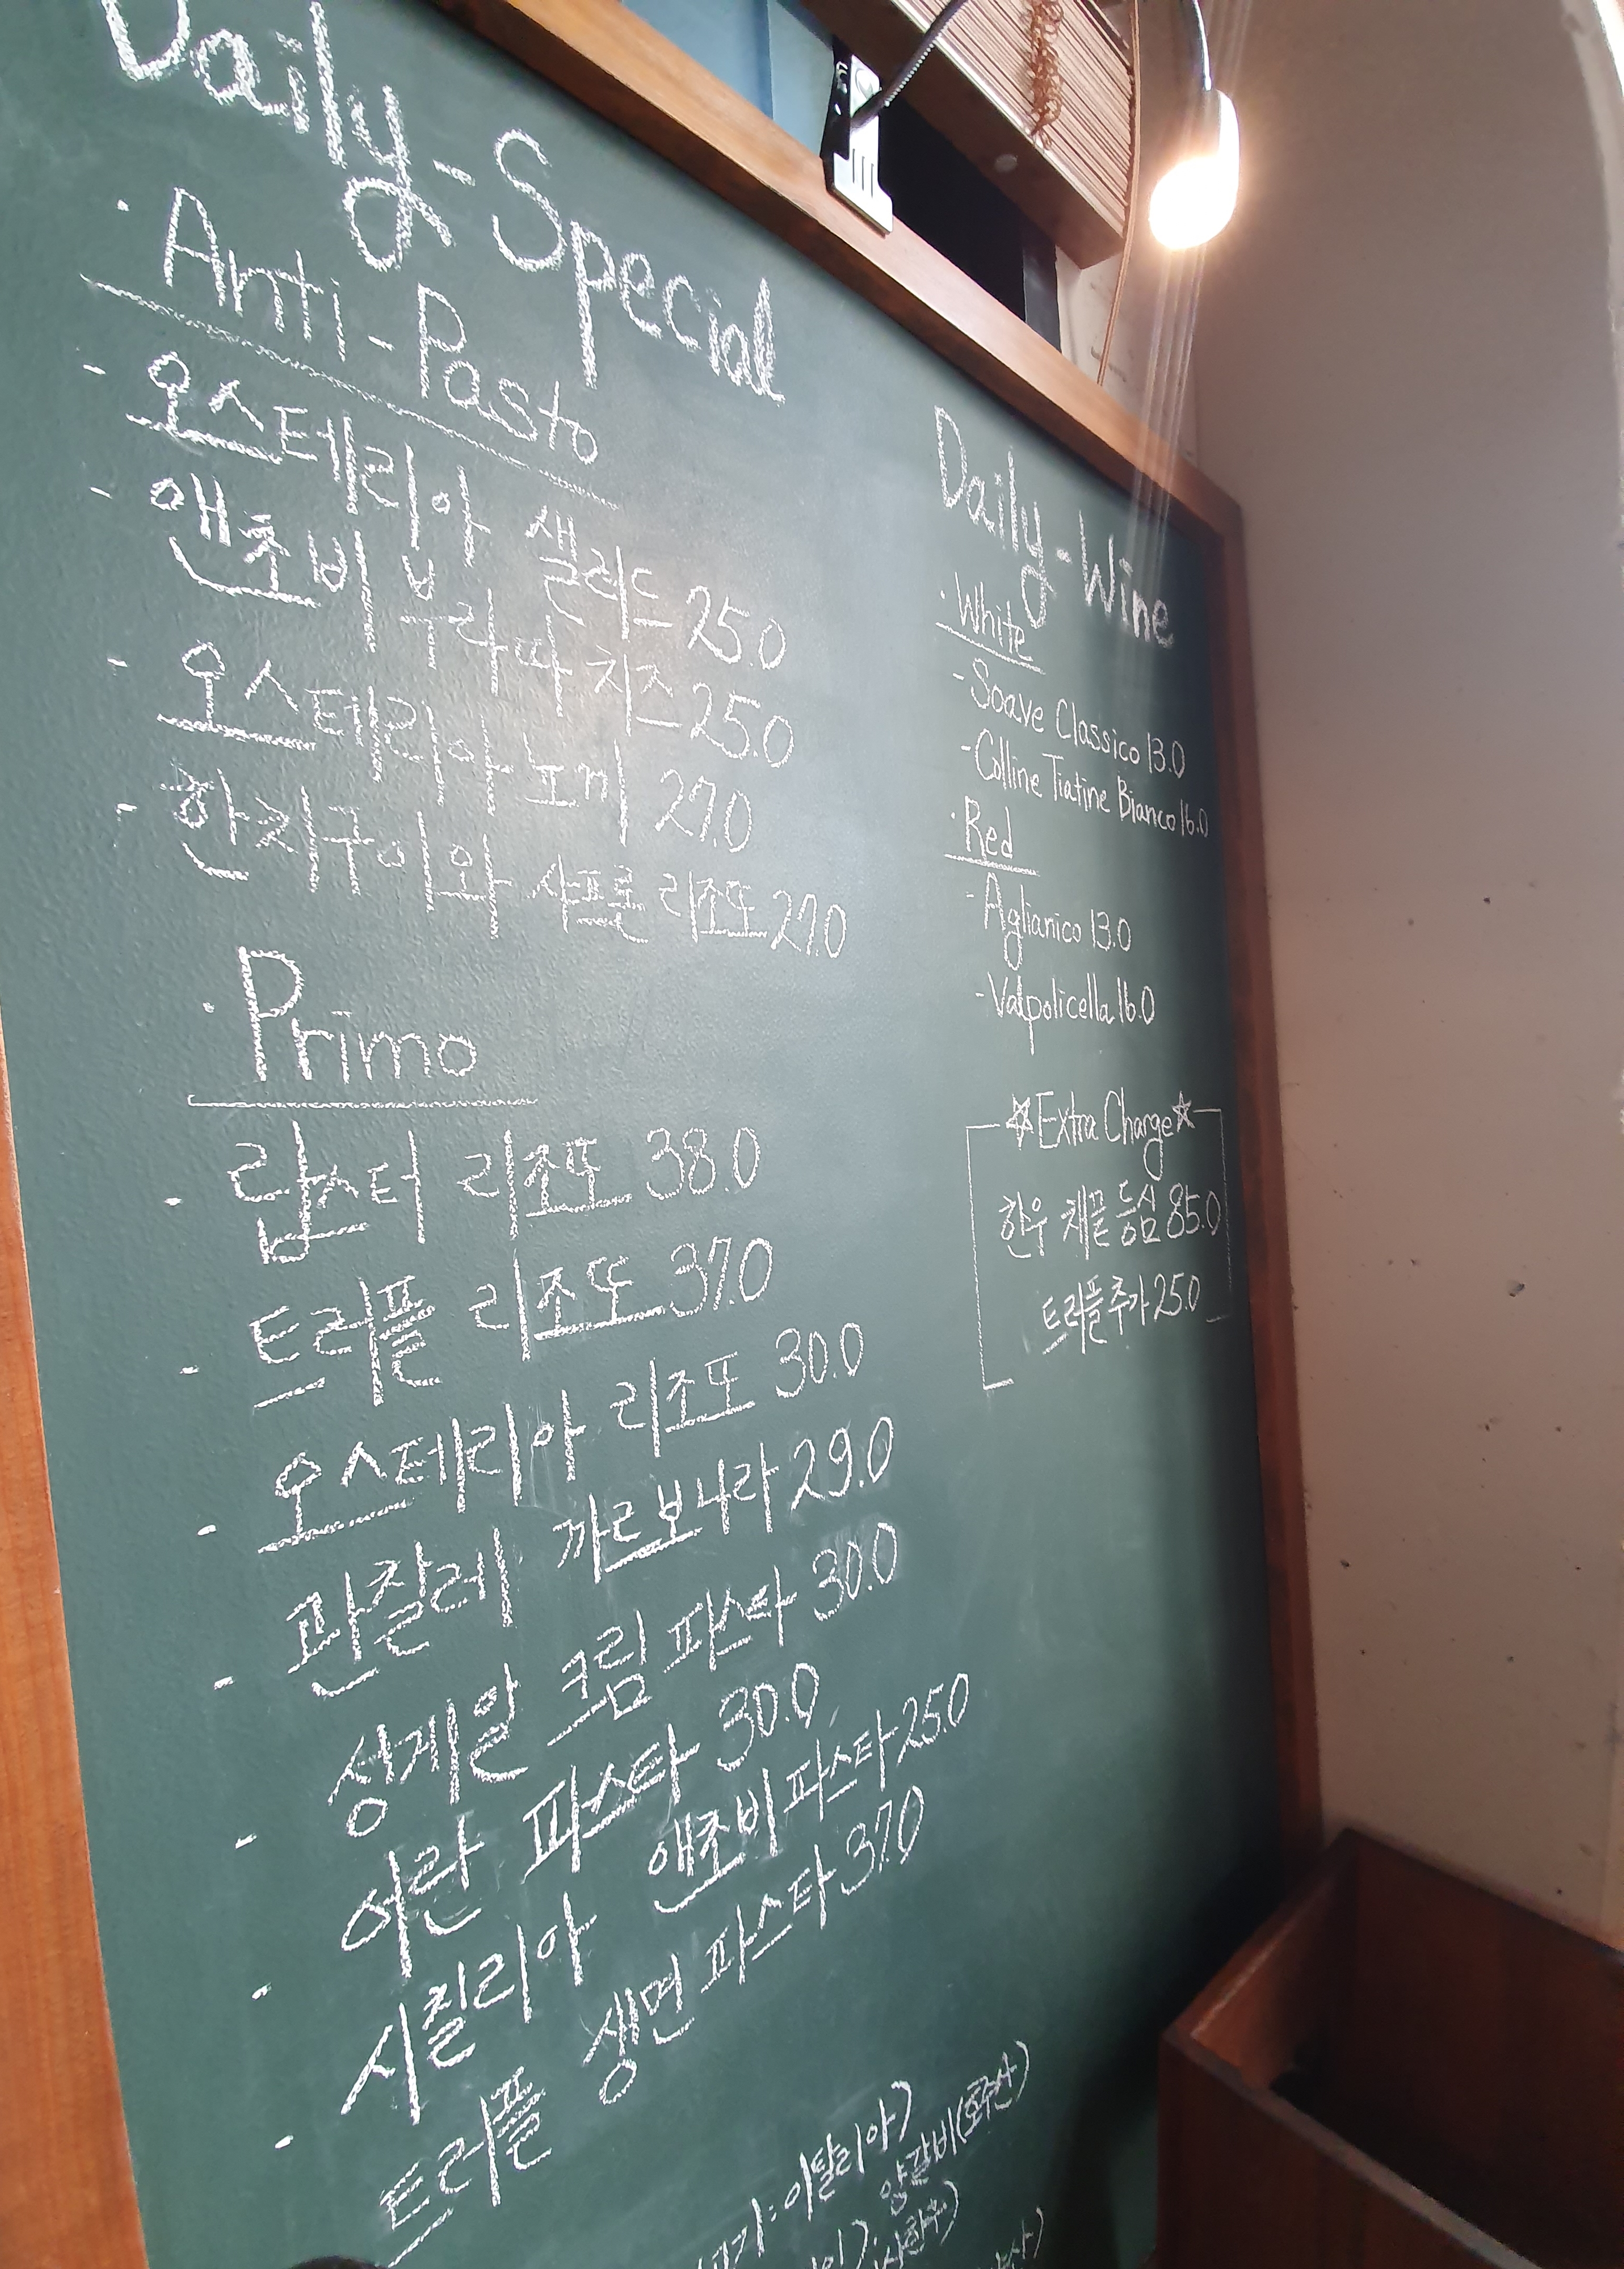 Daily-Special
· Anti-Pasto
- 오스테리아 샐러드 25.0
- 앤초비 부라따 치즈 25.0
- 오스테리아 뇨끼 27.0
- 한치구이와 샤프론 리조또 27.0
· Primo
- 랍스터 리조또 38.0
- 트러플 리조또 37.0
- 오스테리아 리조또 30.0
- 판찰레 까르보나라 29.0
- 성게알 크림 파스타 30.0
- 어란 파스타 30.0
- 시칠리아 앤초비 파스타 25.0
트러플 생면 파스타 37.0
이탈리아)
양갈비(호주산)
Daily-Wine
· White
- Soave Classico 13.0
- Colline Tiatine Bianco 16.0
· Red
- Aglianico 13.0
- Valpolicella 16.0
☆Extra Charge☆
한우 채끝 등심 85.0
트러플추가 25.0